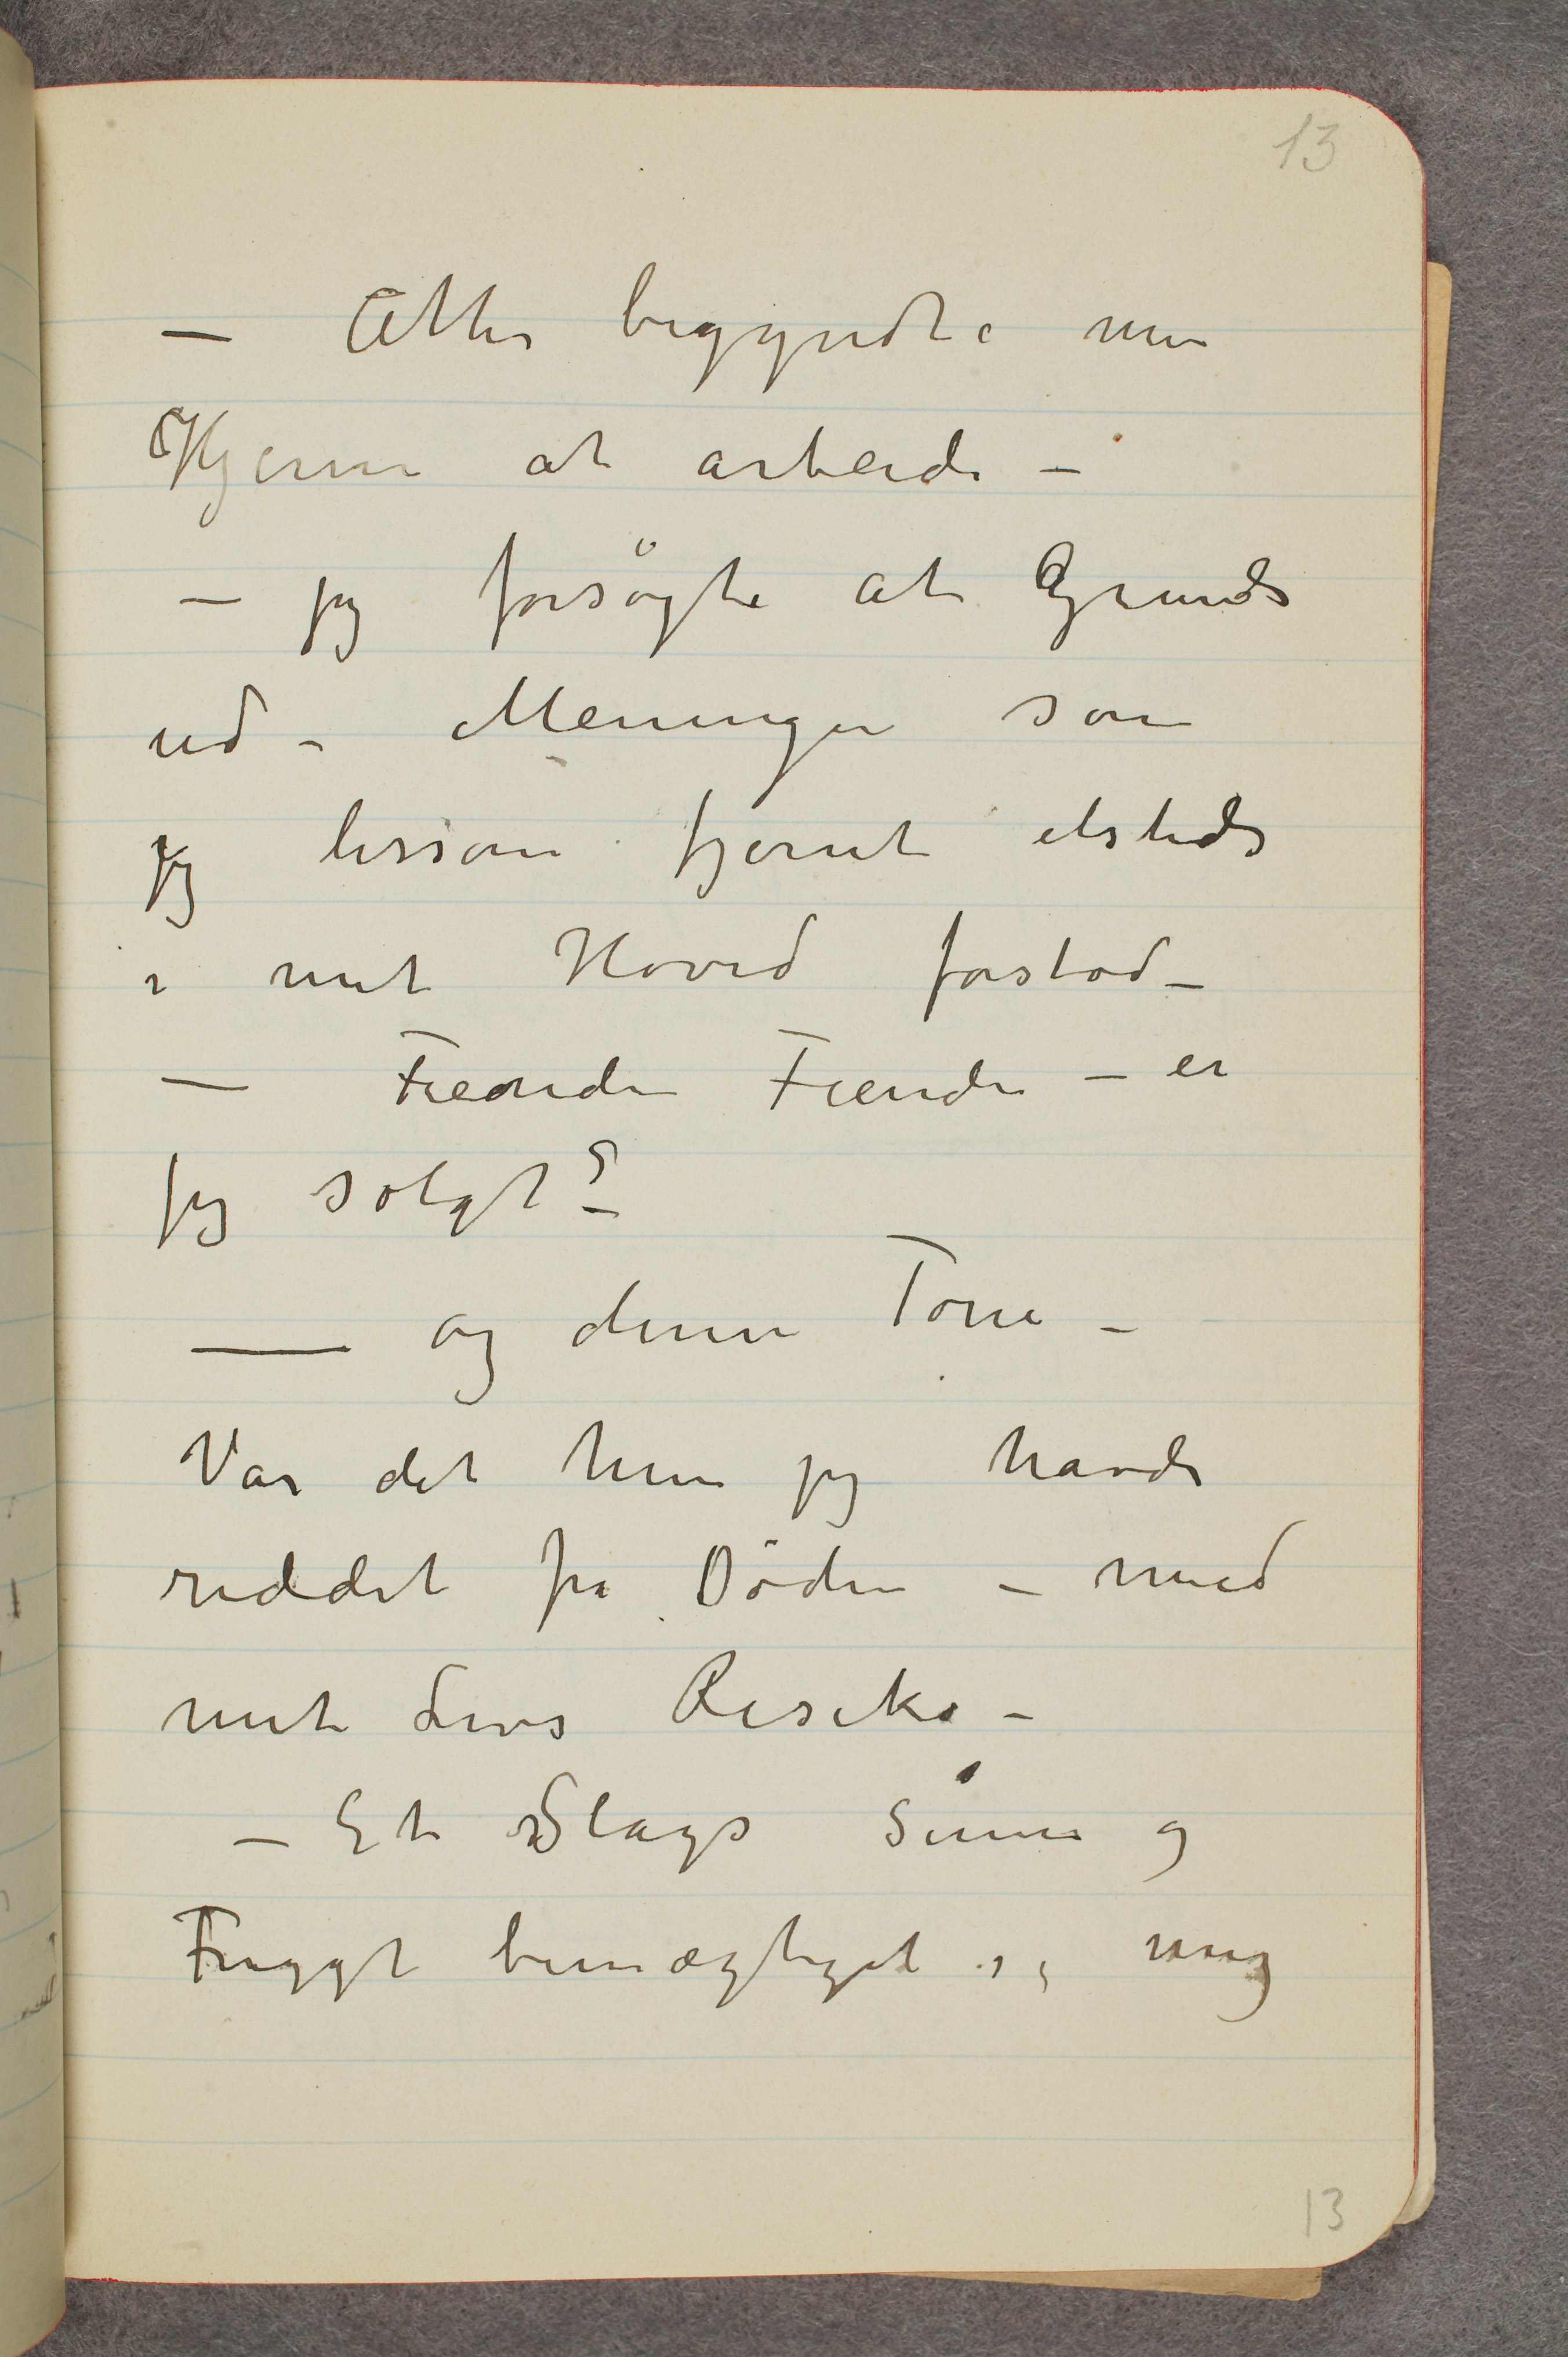 13
— Atter begyndte min
Hjerne at arbeide –
– jeg forsøgte at Grunde
ud – Meninger som
jeg lissom fjernt etsteds
i mit Hoved forstod –
— Fiende Fiende – er
jeg solgt? –
— og denne Tone –
Var det hun jeg havde
reddet fra Döden – med
mit Livs Risiko –
– Et Slags Sinne og
Frygt bemægtiget sig mig
13